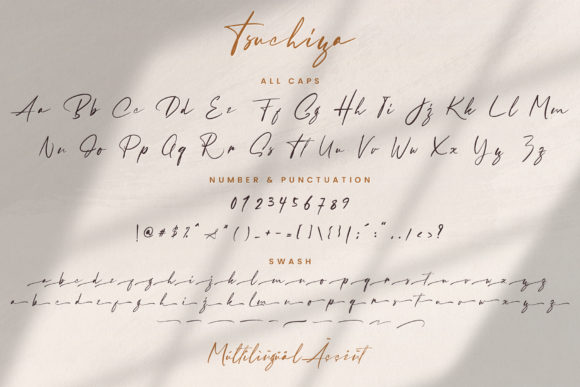 Tsuchiya
ALL CAPS
Aa Bb Cc Dd Ee Ff Gg Hh Ii Jj Kk Ll Mm
Nn Oo Pp Qq Rr Ss Tt Uu Vv Ww Xx Yy Zz
NUMBER & PUNCTUATION
0 1 2 3 4 5 6 7 8 9
SWASH
a b c d e f g h i j k l m n o p q r s t u v w x y z
a b c d e f g h i j k l m n o p q r s t u v w x y z
Multilingual Accent